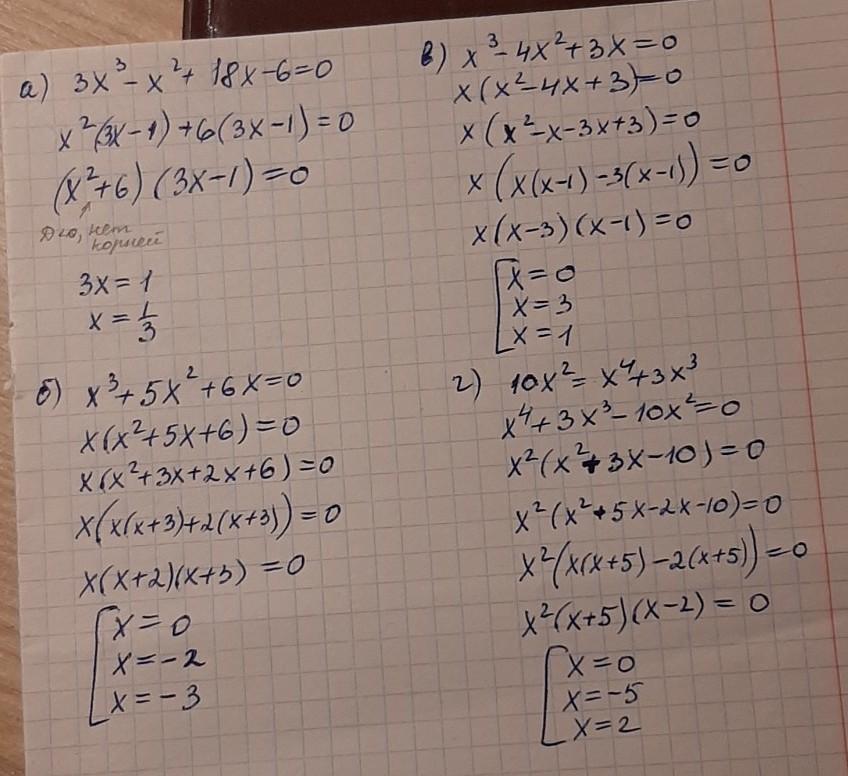 а) 3x³ − x² + 18x − 6 = 0
x²(3x − 1) + 6(3x − 1) = 0
(x² + 6)(3x − 1) = 0
D<0, нет
корней
3x = 1
x = 1/3
б) x³ + 5x² + 6x = 0
x(x² + 5x + 6) = 0
x(x² + 3x + 2x + 6) = 0
x(x(x + 3) + 2(x + 3)) = 0
x(x + 2)(x + 3) = 0
[x = 0
x = −2
x = −3
в) x³ − 4x² + 3x = 0
x(x² − 4x + 3) = 0
x(x² − x − 3x + 3) = 0
x(x(x − 1) − 3(x − 1)) = 0
x(x − 3)(x − 1) = 0
[x = 0
x = 3
x = 1
г) 10x² = x⁴ + 3x³
x⁴ + 3x³ − 10x² = 0
x²(x² + 3x − 10) = 0
x²(x² + 5x − 2x − 10) = 0
x²(x(x + 5) − 2(x + 5)) = 0
x²(x + 5)(x − 2) = 0
[x = 0
x = −5
x = 2